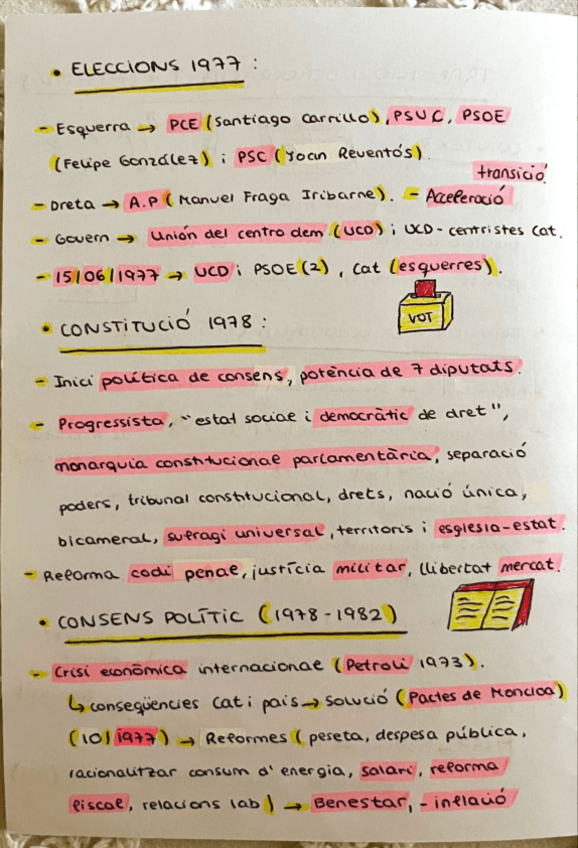 • ELECCIONS 1977 :
- Esquerra → PCE (Santiago Carrillo), PSUC, PSOE
(Felipe González) i PSC (Joan Reventós).
transició.
- Dreta → A.P (Manuel Fraga Iribarne). - Acceleració
- Govern → Unión del centro dem (UCD) i UCD-centristes Cat.
- 15/06/1977 → UCD i PSOE (2), Cat (esquerres).
VOT
• CONSTITUCIÓ 1978 :
- Inici política de consens, potència de 7 diputats.
- Progressista, "estat social i democràtic de dret",
monarquia constitucional parlamentària, separació
poders, tribunal constitucional, drets, nació única,
bicameral, sufragi universal, territoris i església-estat.
- Reforma codi penal, justícia militar, llibertat mercat.
• CONSENS POLÍTIC (1978-1982)
- Crisi econòmica internacional (Petroli 1973).
↳ conseqüències Cat i país → Solució (Pactes de Moncloa)
(10/1977) → Reformes (peseta, despesa pública,
racionalitzar consum d'energia, salari, reforma
fiscal, relacions lab) → Benestar, - inflació